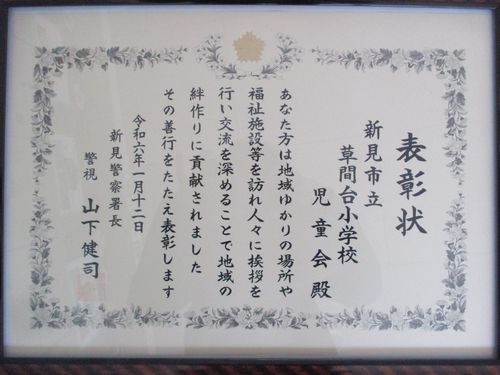 表彰状
新見市立
草間台小学校
児童会殿
あなた方は地域ゆかりの場所や
福祉施設等を訪れ人々に挨拶を
行い交流を深めることで地域の
絆作りに貢献されました
その善行をたたえ表彰します
令和六年一月十二日
新見警察署長
警視 山下健司